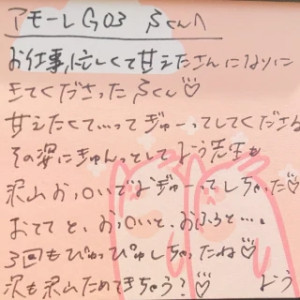 アモーレG03 Sくんへ
お仕事忙しくて甘えたさんになりに
きてくださったSくん♡
甘えたくてぃってぎゅーってしてくださる
その姿にきゅんっとして よう先生も
沢山お〇いでぎゅーってしちゃった♡
おててと、お〇いと、おふろと…。
3回もぴゅっぴゅしちゃったね♡
次も沢山ためてきちゃう？♡ よう